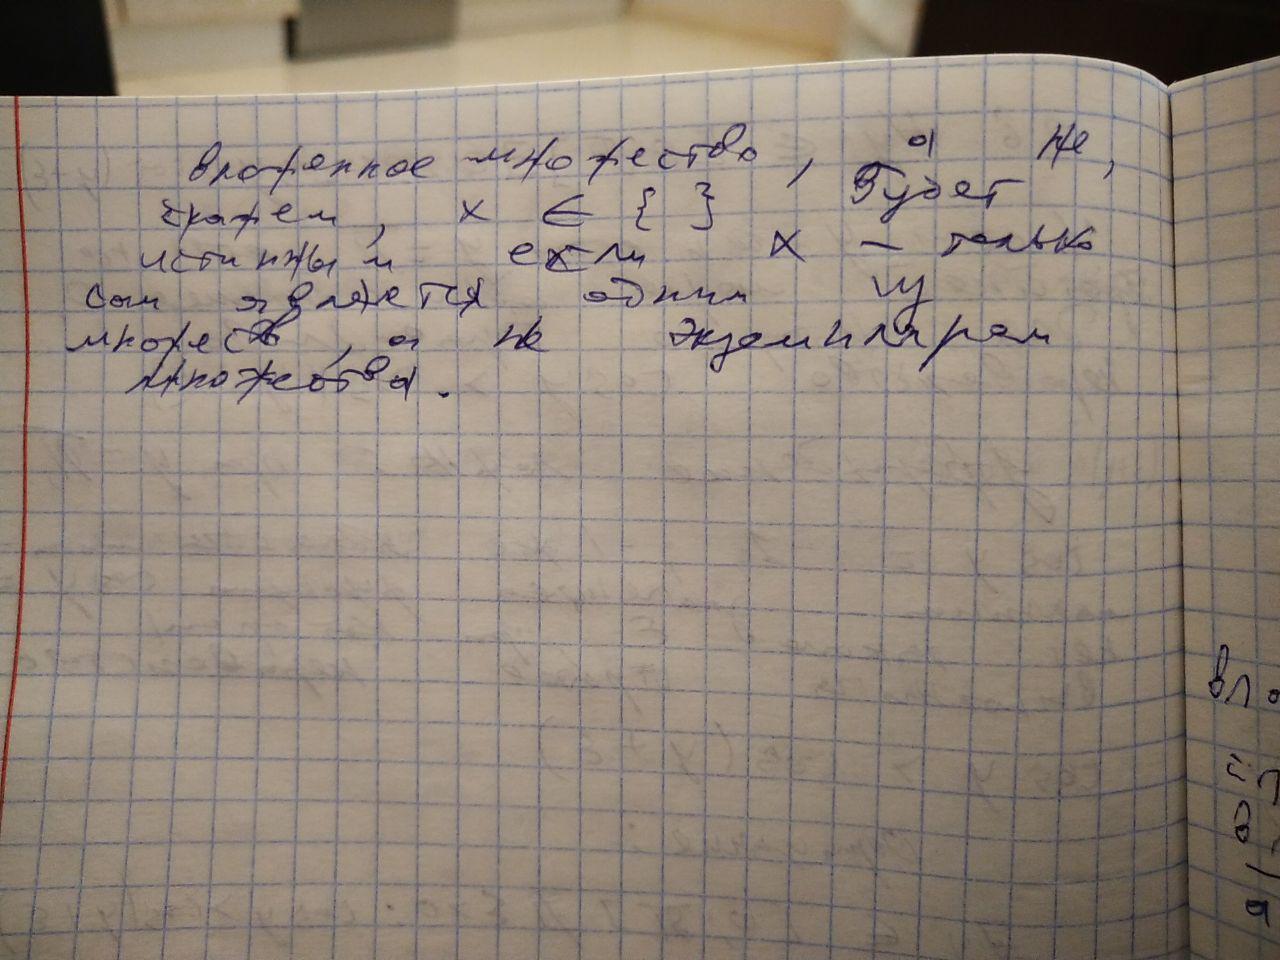 вложенное множество, а не,
скажем, x ∈ { }, Будет
истинным если x — только
сам является одним из
множеств, а не экземпляром
множества.
вло